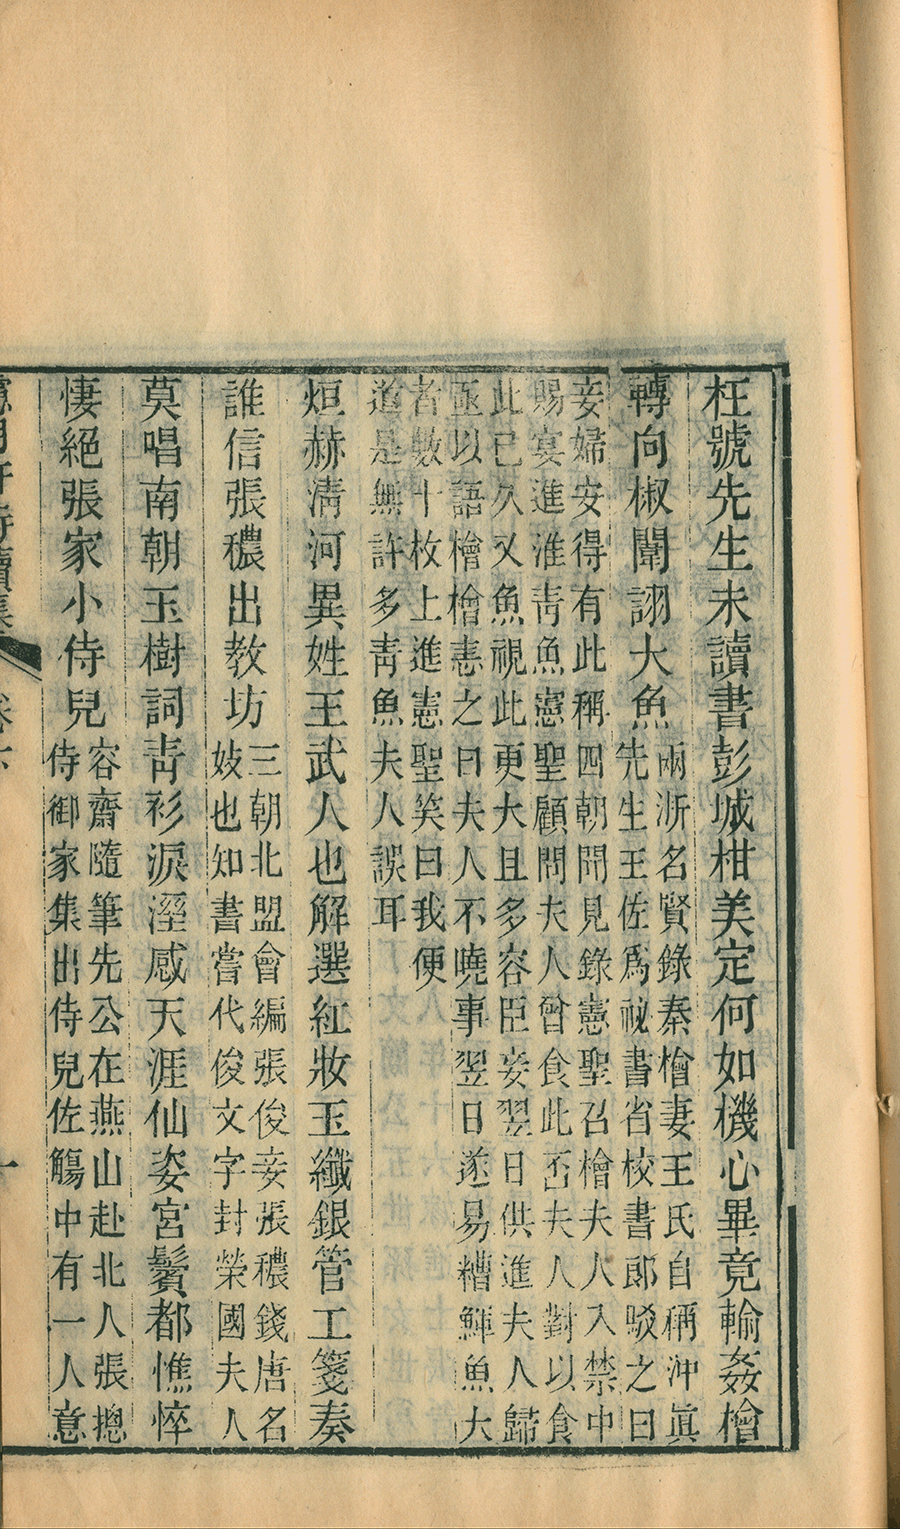 枉號先生未讀書彭城柑美定何如機心畢竟輸姦檜
轉向椒闈詡大魚
兩浙名賢錄秦檜妻王氏自稱沖眞
先生王佐爲祕書省校書郎駁之曰
妾婦安得有此稱四朝聞見錄憲聖召檜夫人入禁中
賜宴進淮靑魚憲聖顧問夫人曾食此否夫人對以食
此已久又魚視此更大且多容臣妾翌日供進夫人歸
亟以語檜檜恚之曰夫人不曉事翌日遂易糟鯶魚大
者數十枚上進憲聖笑曰我便
道是無許多靑魚夫人誤耳
烜赫淸河異姓王武人也解選紅妝玉纖銀管工箋奏
誰信張穠出教坊
三朝北盟會編張俊妾張穠錢唐名
妓也知書嘗代俊文字封榮國夫人
莫唱南朝玉樹詞靑衫淚溼感天涯仙姿宮鬢都憔悴
悽絕張家小侍兒
容齋隨筆先公在燕山赴北人張總
侍御家集出侍兒佐觴中有一人意